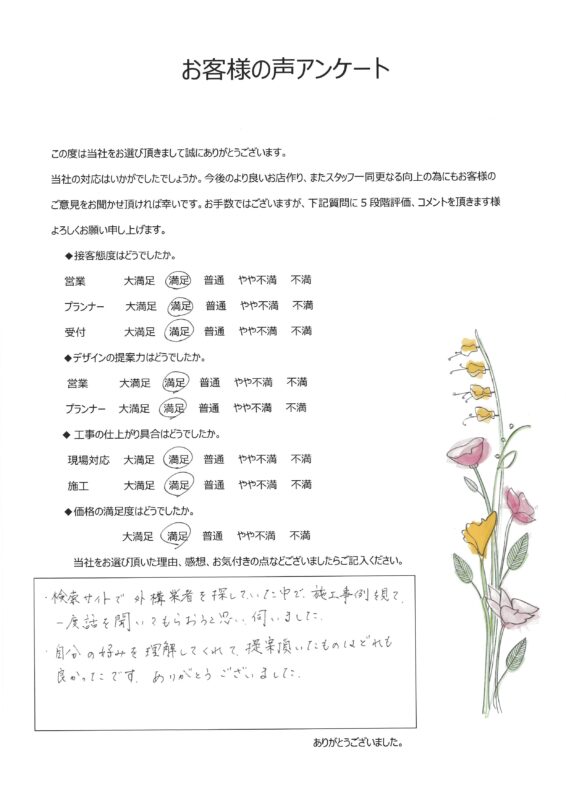 お客様の声アンケート
この度は当社をお選び頂きまして誠にありがとうございます。
当社の対応はいかがでしたでしょうか。今後のより良いお店作り、またスタッフ一同更なる向上の為にもお客様の
ご意見をお聞かせ頂ければ幸いです。お手数ではございますが、下記質問に5段階評価、コメントを頂きます様
よろしくお願い申し上げます。
◆接客態度はどうでしたか。
営業 大満足 満足 普通 やや不満 不満
プランナー 大満足 満足 普通 やや不満 不満
受付 大満足 満足 普通 やや不満 不満
◆デザインの提案力はどうでしたか。
営業 大満足 満足 普通 やや不満 不満
プランナー 大満足 満足 普通 やや不満 不満
◆ 工事の仕上がり具合はどうでしたか。
現場対応 大満足 満足 普通 やや不満 不満
施工 大満足 満足 普通 やや不満 不満
◆価格の満足度はどうでしたか。
大満足 満足 普通 やや不満 不満
当社をお選び頂いた理由、感想、お気付きの点などございましたらご記入ください。
・検索サイトで外構業者を探していた中で、施工事例を見て、
一度話を聞いてもらおうと思い、伺いました。
・自分の好みを理解してくれて、提案頂いたものはどれも
良かったです。ありがとうございました。
ありがとうございました。